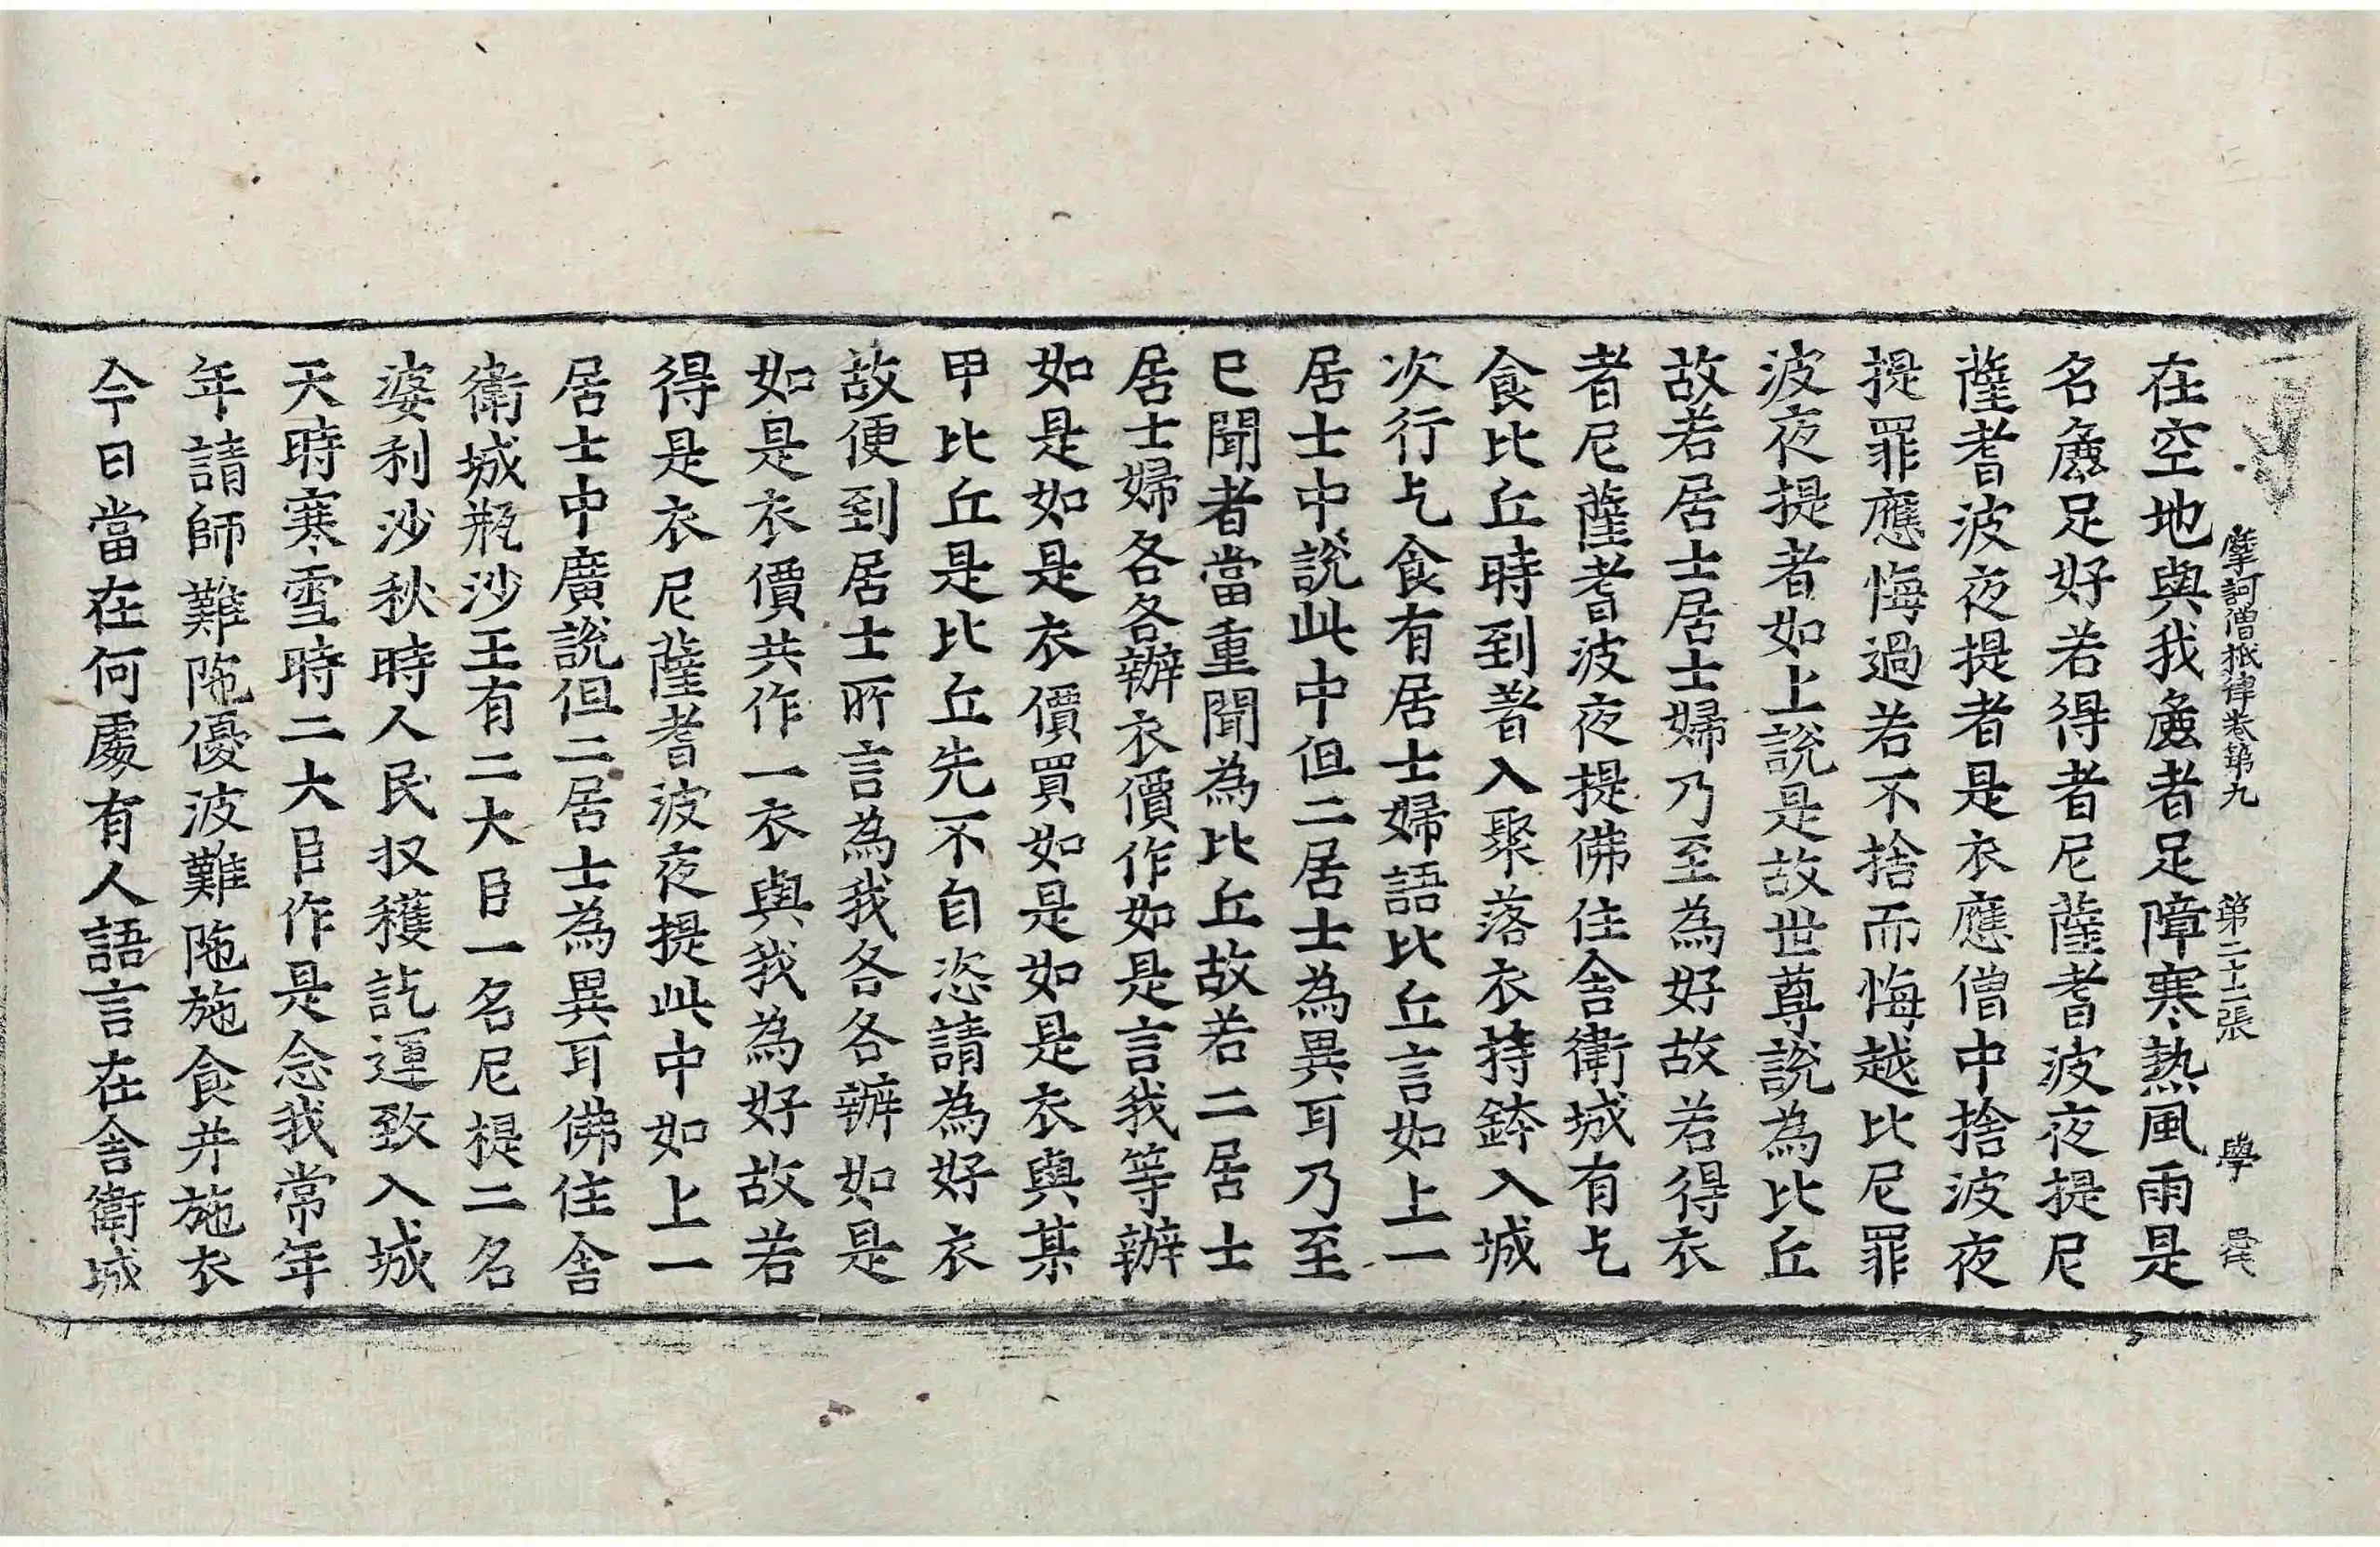 摩訶僧祇律卷第九　第二十二張　學
在空地與我麁者足障寒熱風雨是
名麁足好若得者尼薩耆波夜提尼
薩耆波夜提者是衣應僧中捨波夜
提罪應悔過若不捨而悔越比尼罪
波夜提者如上說是故世尊說為比丘
故若居士居士婦乃至為好故若得衣
者尼薩耆波夜提佛住舍衛城有乞
食比丘時到著入聚落衣持鉢入城
次行乞食有居士婦語比丘言如上一
居士中說此中但二居士為異耳乃至
已聞者當重聞為比丘故若二居士
居士婦各各辦衣價作如是言我等辦
如是如是衣價買如是如是衣與某
甲比丘是比丘先不自恣請為好衣
故便到居士所言為我各各辦如是
如是衣價共作一衣與我為好故若
得是衣尼薩耆波夜提此中如上一
居士中廣說但二居士為異耳佛住舍
衛城瓶沙王有二大臣一名尼提二名
婆利沙秋時人民収穫訖運致入城
天時寒雪時二大臣作是念我常年
年請師難陁優波難陁施食并施衣
今日當在何處有人語言在舍衛城